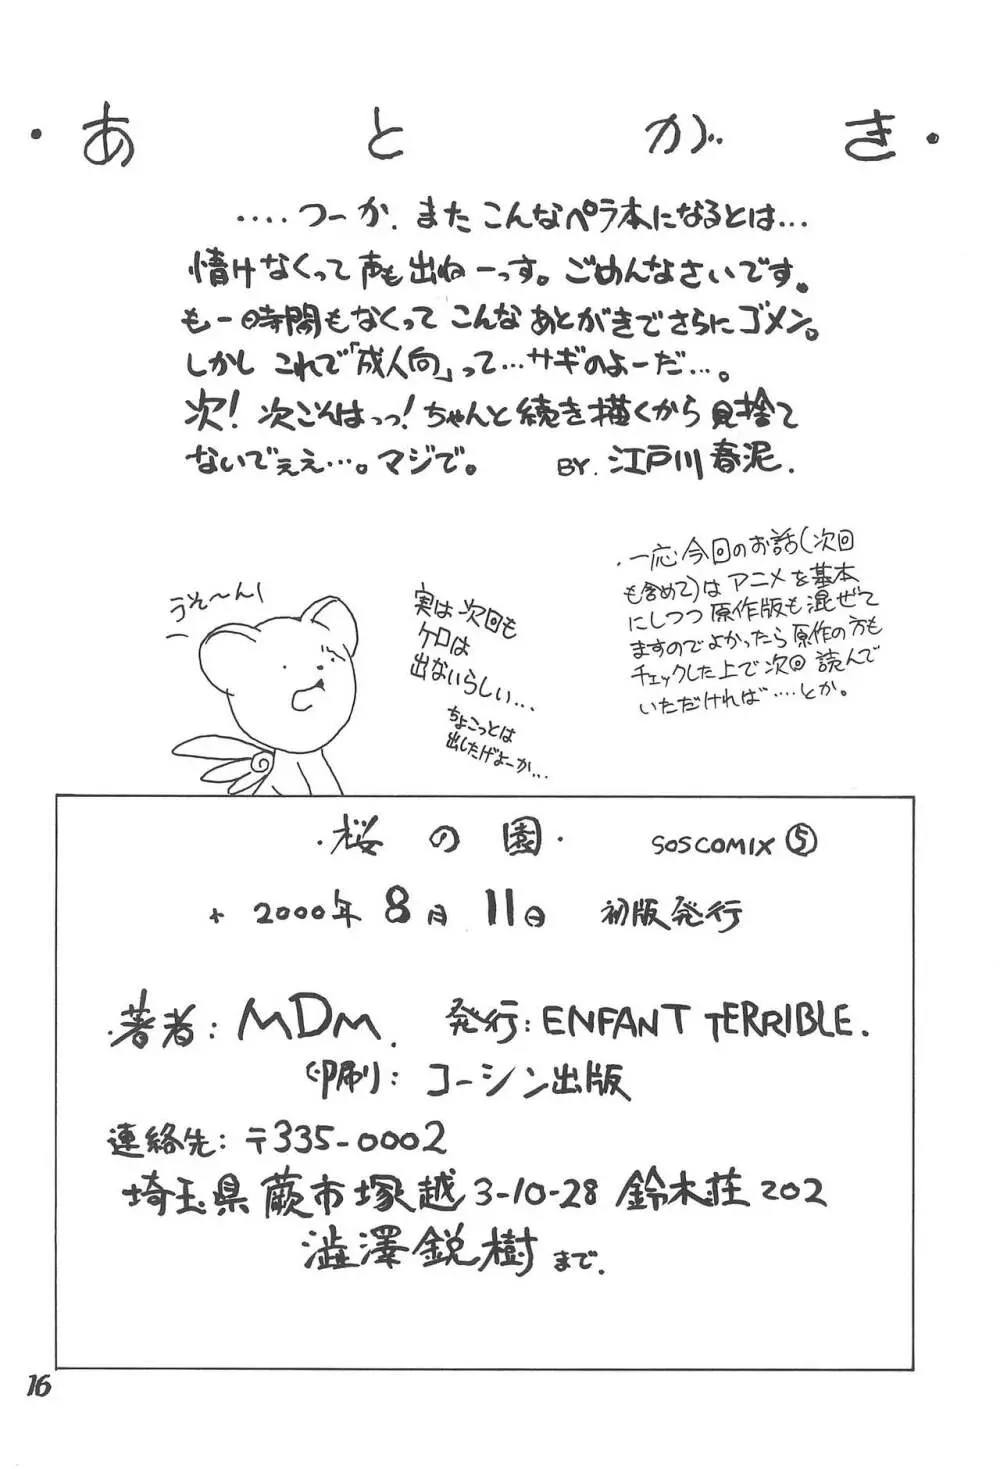 ・あとがき・
....つーか、またこんなペラ本になるとは...
情けなくって声も出ねーっす。ごめんなさいです。
も一時間もなくってこんなあとがきでさらにゴメン。
しかしこれで「成人向」って…サギのよーだ…。
次！次こそはっっ！ちゃんと続き描くから見捨て
ないでぇぇ…。マジで。 BY.江戸川春泥.
・一応今回のお話(次回
も含めて)はアニメを基本
にしつつ原作版も混ぜて
ますのでよかったら原作の方も
チェックした上で次回読んで
いただければ……とか。
うそ〜ん！
実は次回も
ケロは
出ないらしい...
ちょこっとは
出したげよーか...
・桜の園・ SOSCOMIX⑤
+ 2000年8月11日 初版発行
・著者:MDM. 発行:ENFANT TERRIBLE.
印刷:コーシン出版
連絡先:〒335-0002
埼玉県蕨市塚越3-10-28 鈴木荘202
澁澤鋭樹まで.
16